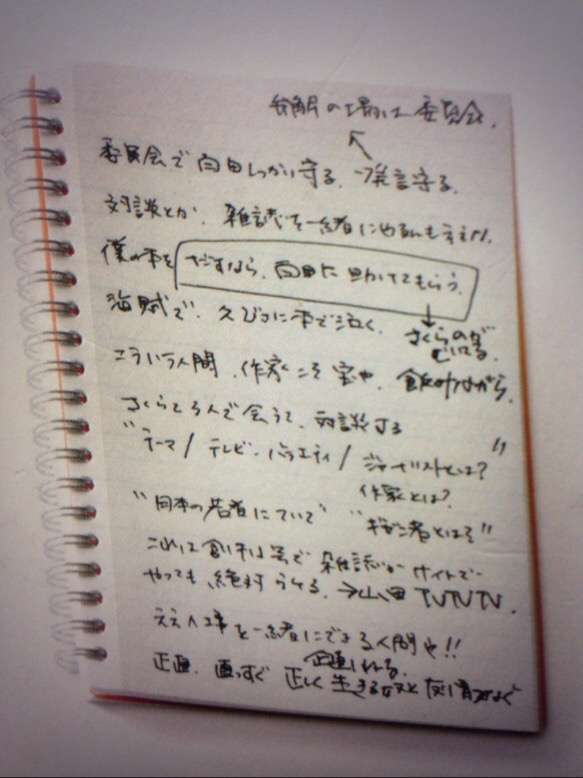 の場は委員会。
委員会で 向田しっかり守る。発言守る。
対談とか、雑誌を一緒にやるんもええ
僕の本を だすなら、向田に助けてもらう。
海賊で、久びさに本で泣く。 さくらのが
こういう人間、作家こそ宝や。飲みながら、
さくらと3人で会うて、対談する
"テーマ / テレビ・バラエティ / ジャーナリストとは?"
作家とは?
"日本の若者について" "ギゼン者とは?"
これは 雑誌か サイトで
やっても、絶対うける。→山田 TVTVTV
ええ仕事を一緒にできる人間や!!
企画
正直、真っすぐ 正しく生きる